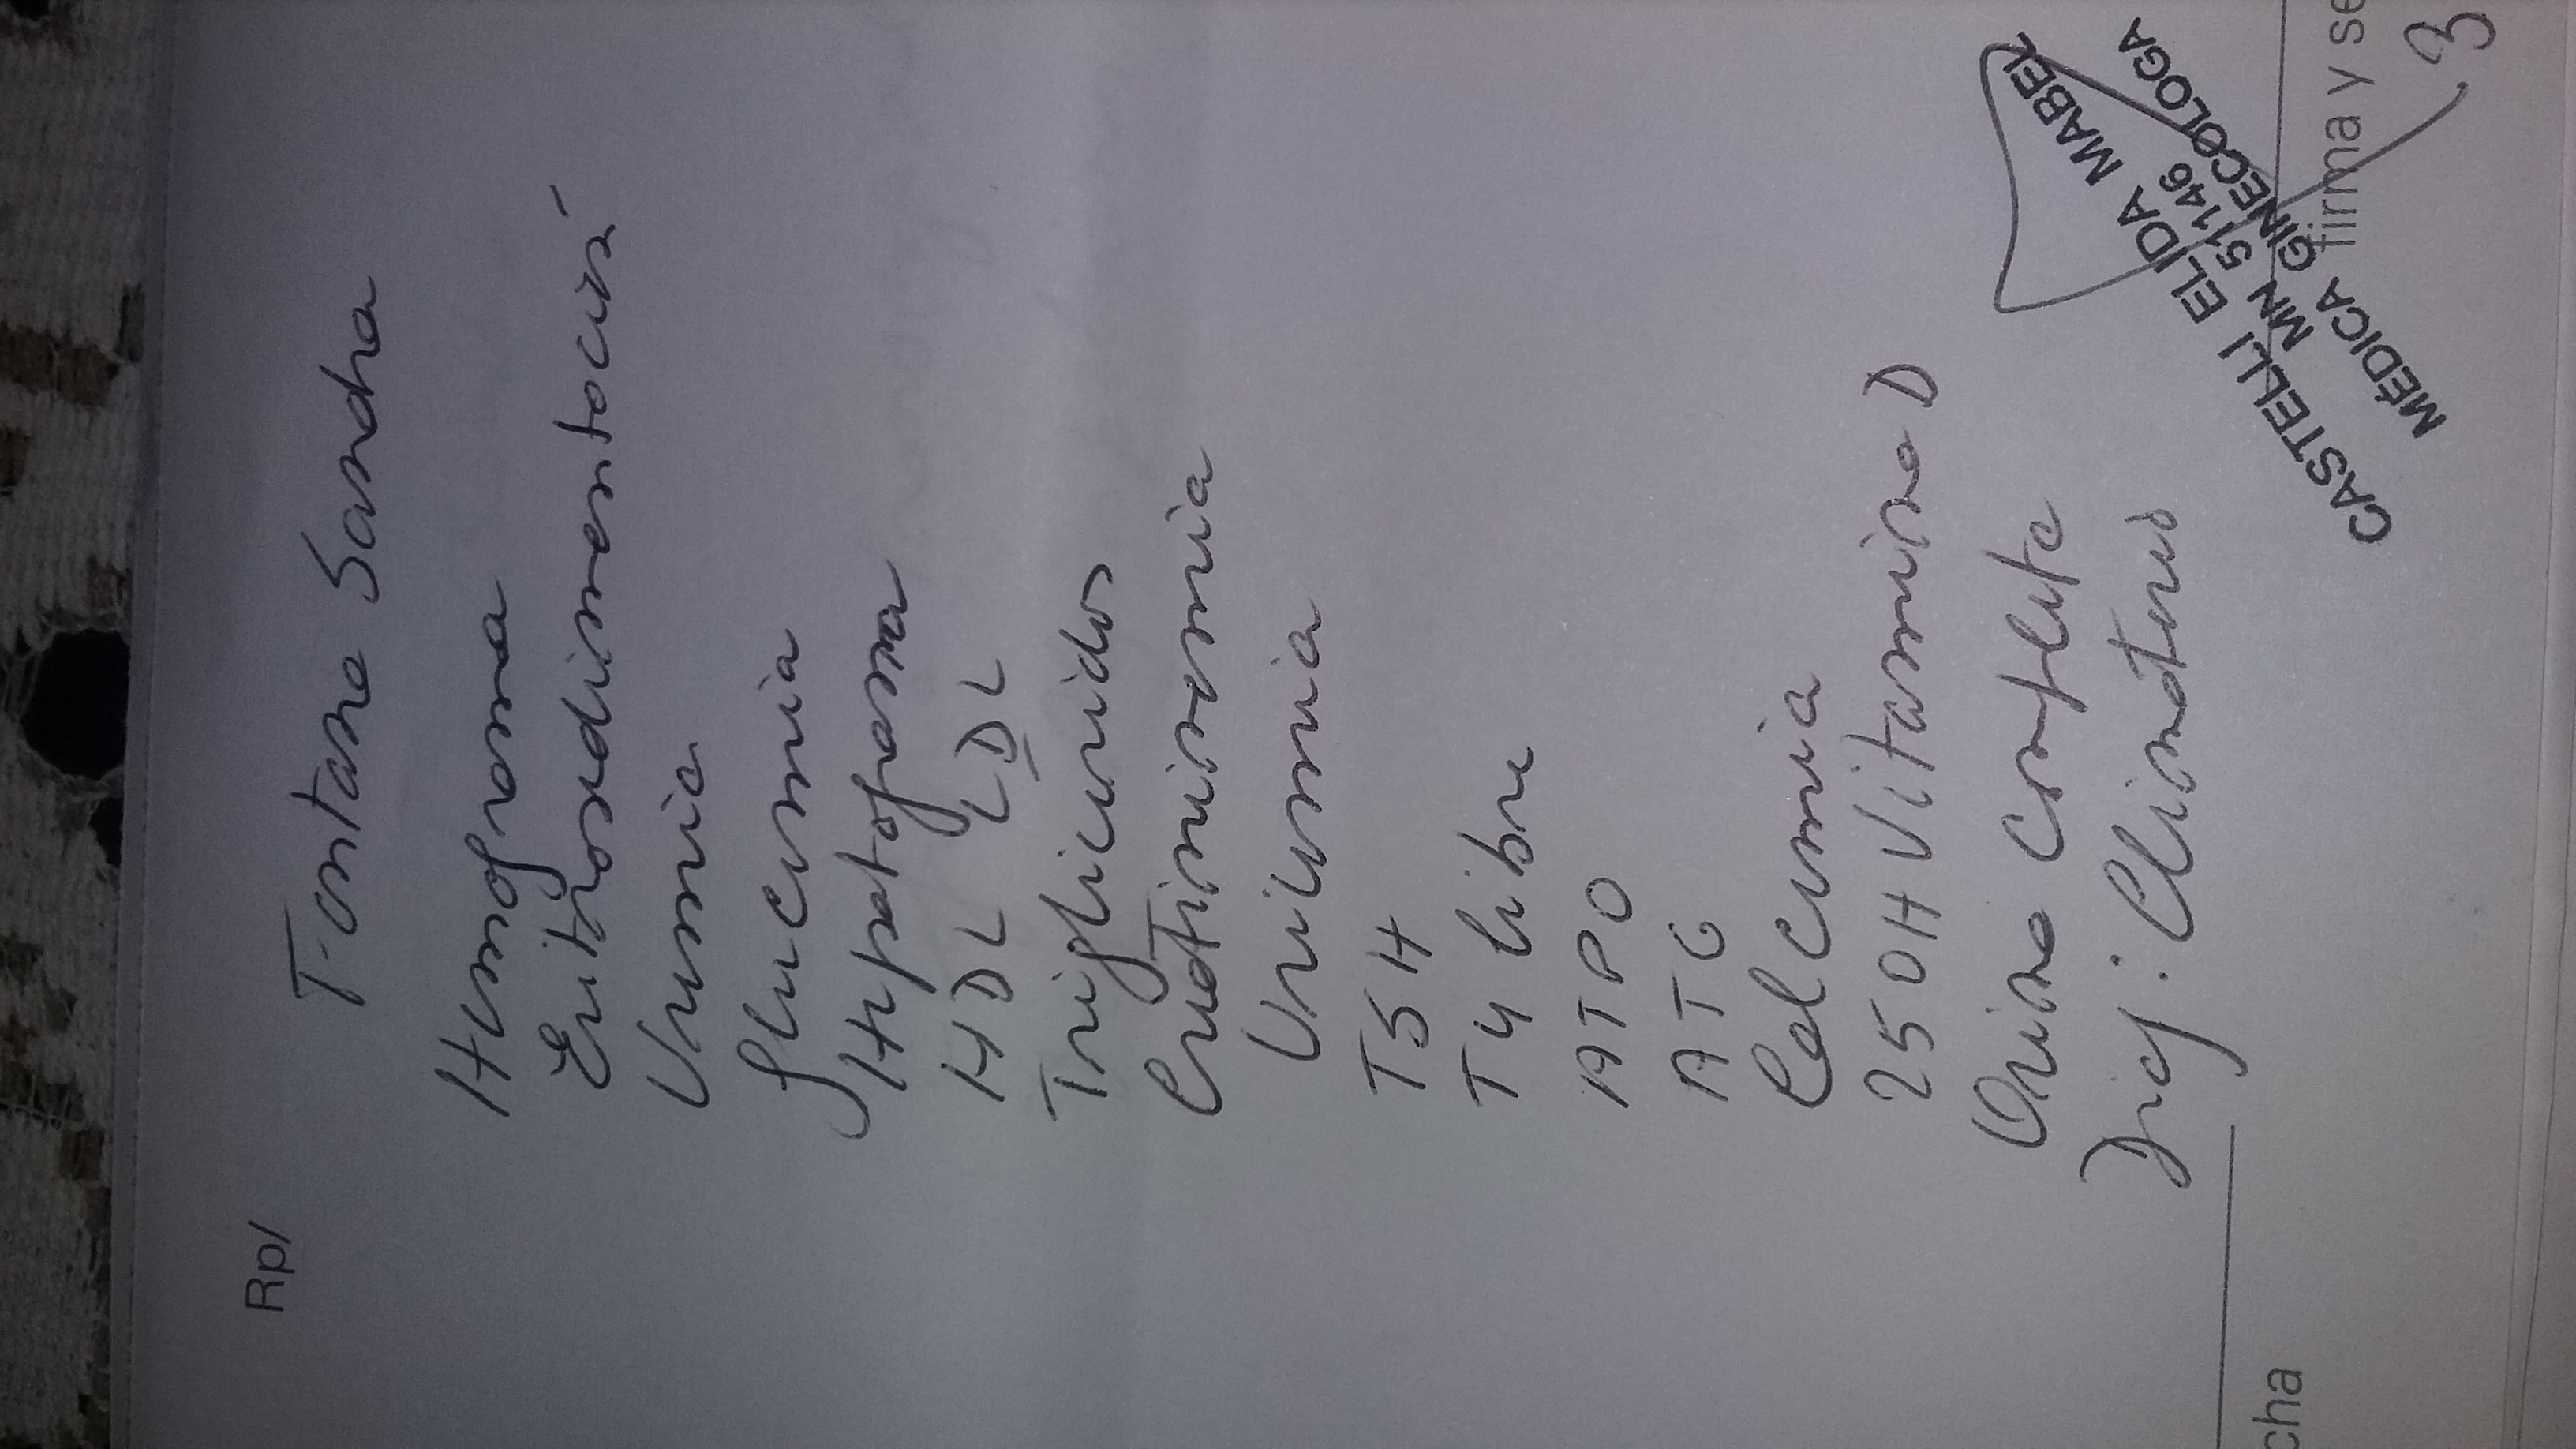 Rp/
Fontana Sandra
Hemograma
Eritrosedimentación
Uremia
Glucemia
Hepatograma
HDL LDL
Trigliceridos
Creatininemia
Uricemia
TSH
T4 libre
ATPO
ATG
Calcemia
25 OH Vitamina D
Orina completa
Diag: Climaterio
CASTELLI ELIDA MABEL
MN 51146
MÉDICA GINECOLOGA
cha
firma y se